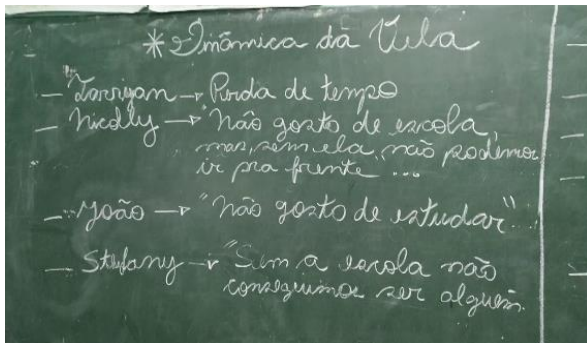 * Dinâmica da Vela
— Tarrigan → Perda de tempo
— Nicolly → "Não gosto de escola,
mas, sem ela, não podemos
ir pra frente ...
— João → "Não gosto de estudar"
— Stefany → "Sem a escola não
conseguimos ser alguém.